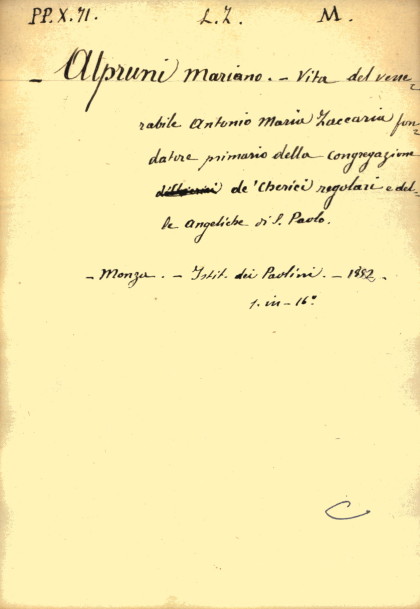 PP.X.71. L.Z. M.
- Alpruni Mariano. - Vita del vene=
rabile Antonio Maria Zaccaria fon=
datore primario della Congregazione
de' Cherici regolari e del-
le Angeliche di S. Paolo.
- Monza. - Istit. dei Paolini. - 1852.
1. in - 16°
C